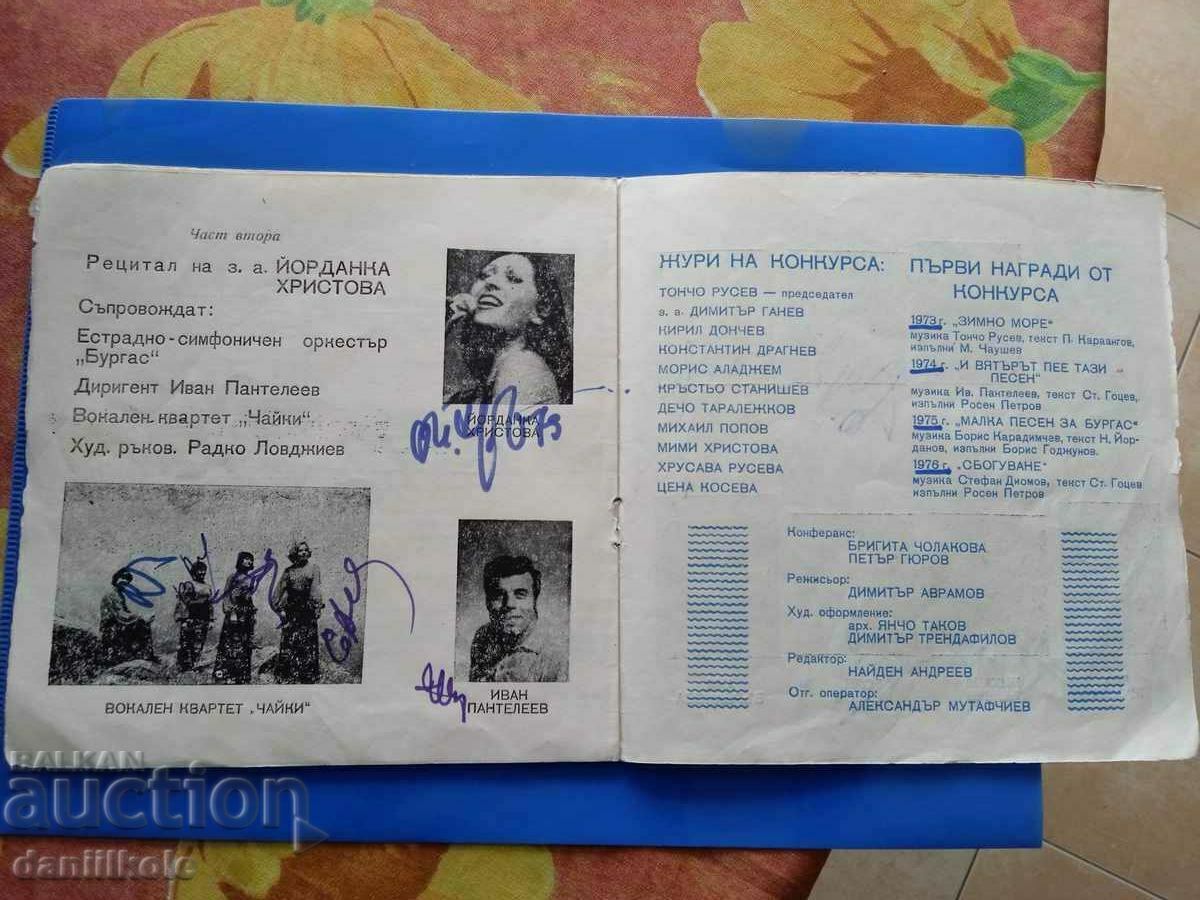 Част втора
Рецитал на з. а. ЙОРДАНКА
ХРИСТОВА
Съпровождат:
Естрадно-симфоничен оркестър
„Бургас“
Диригент Иван Пантелеев
Вокален квартет „Чайки“
Худ. ръков. Радко Ловджиев
ЙОРДАНКА
ХРИСТОВА
ВОКАЛЕН КВАРТЕТ „ЧАЙКИ“
ИВАН
ПАНТЕЛЕЕВ
ЖУРИ НА КОНКУРСА:
ТОНЧО РУСЕВ — председател
з. а. ДИМИТЪР ГАНЕВ
КИРИЛ ДОНЧЕВ
КОНСТАНТИН ДРАГНЕВ
МОРИС АЛАДЖЕМ
КРЪСТЬО СТАНИШЕВ
ДЕЧО ТАРАЛЕЖКОВ
МИХАИЛ ПОПОВ
МИМИ ХРИСТОВА
ХРУСАВА РУСЕВА
ЦЕНА КОСЕВА
ПЪРВИ НАГРАДИ ОТ
КОНКУРСА
1973 г. „ЗИМНО МОРЕ“
музика Тончо Русев, текст П. Караангов,
изпълни М. Чаушев
1974 г. „И ВЯТЪРЪТ ПЕЕ ТАЗИ
ПЕСЕН“
музика Ив. Пантелеев, текст Ст. Гоцев,
изпълни Росен Петров
1975 г. „МАЛКА ПЕСЕН ЗА БУРГАС“
музика Борис Карадимчев, текст Н. Йор-
данов, изпълни Борис Годжунов.
1976 г. „СБОГУВАНЕ“
музика Стефан Диомов, текст Ст. Гоцев
изпълни Росен Петров
Конферанс:
БРИГИТА ЧОЛАКОВА
ПЕТЪР ГЮРОВ
Режисьор:
ДИМИТЪР АВРАМОВ
Худ. оформление:
арх. ЯНЧО ТАКОВ
ДИМИТЪР ТРЕНДАФИЛОВ
Редактор:
НАЙДЕН АНДРЕЕВ
Отг. оператор:
АЛЕКСАНДЪР МУТАФЧИЕВ
BALKAN
auction
daniilkole